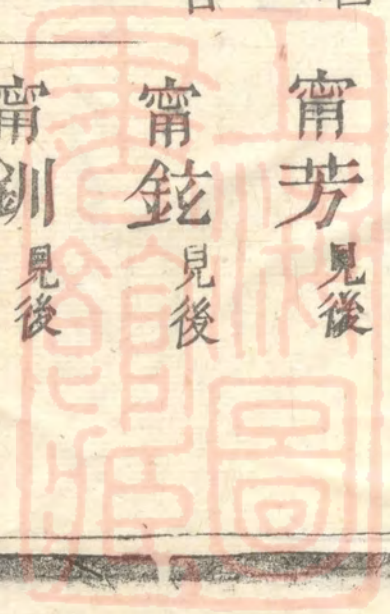 甯芳見後
甯鉉見後
甯釧見後